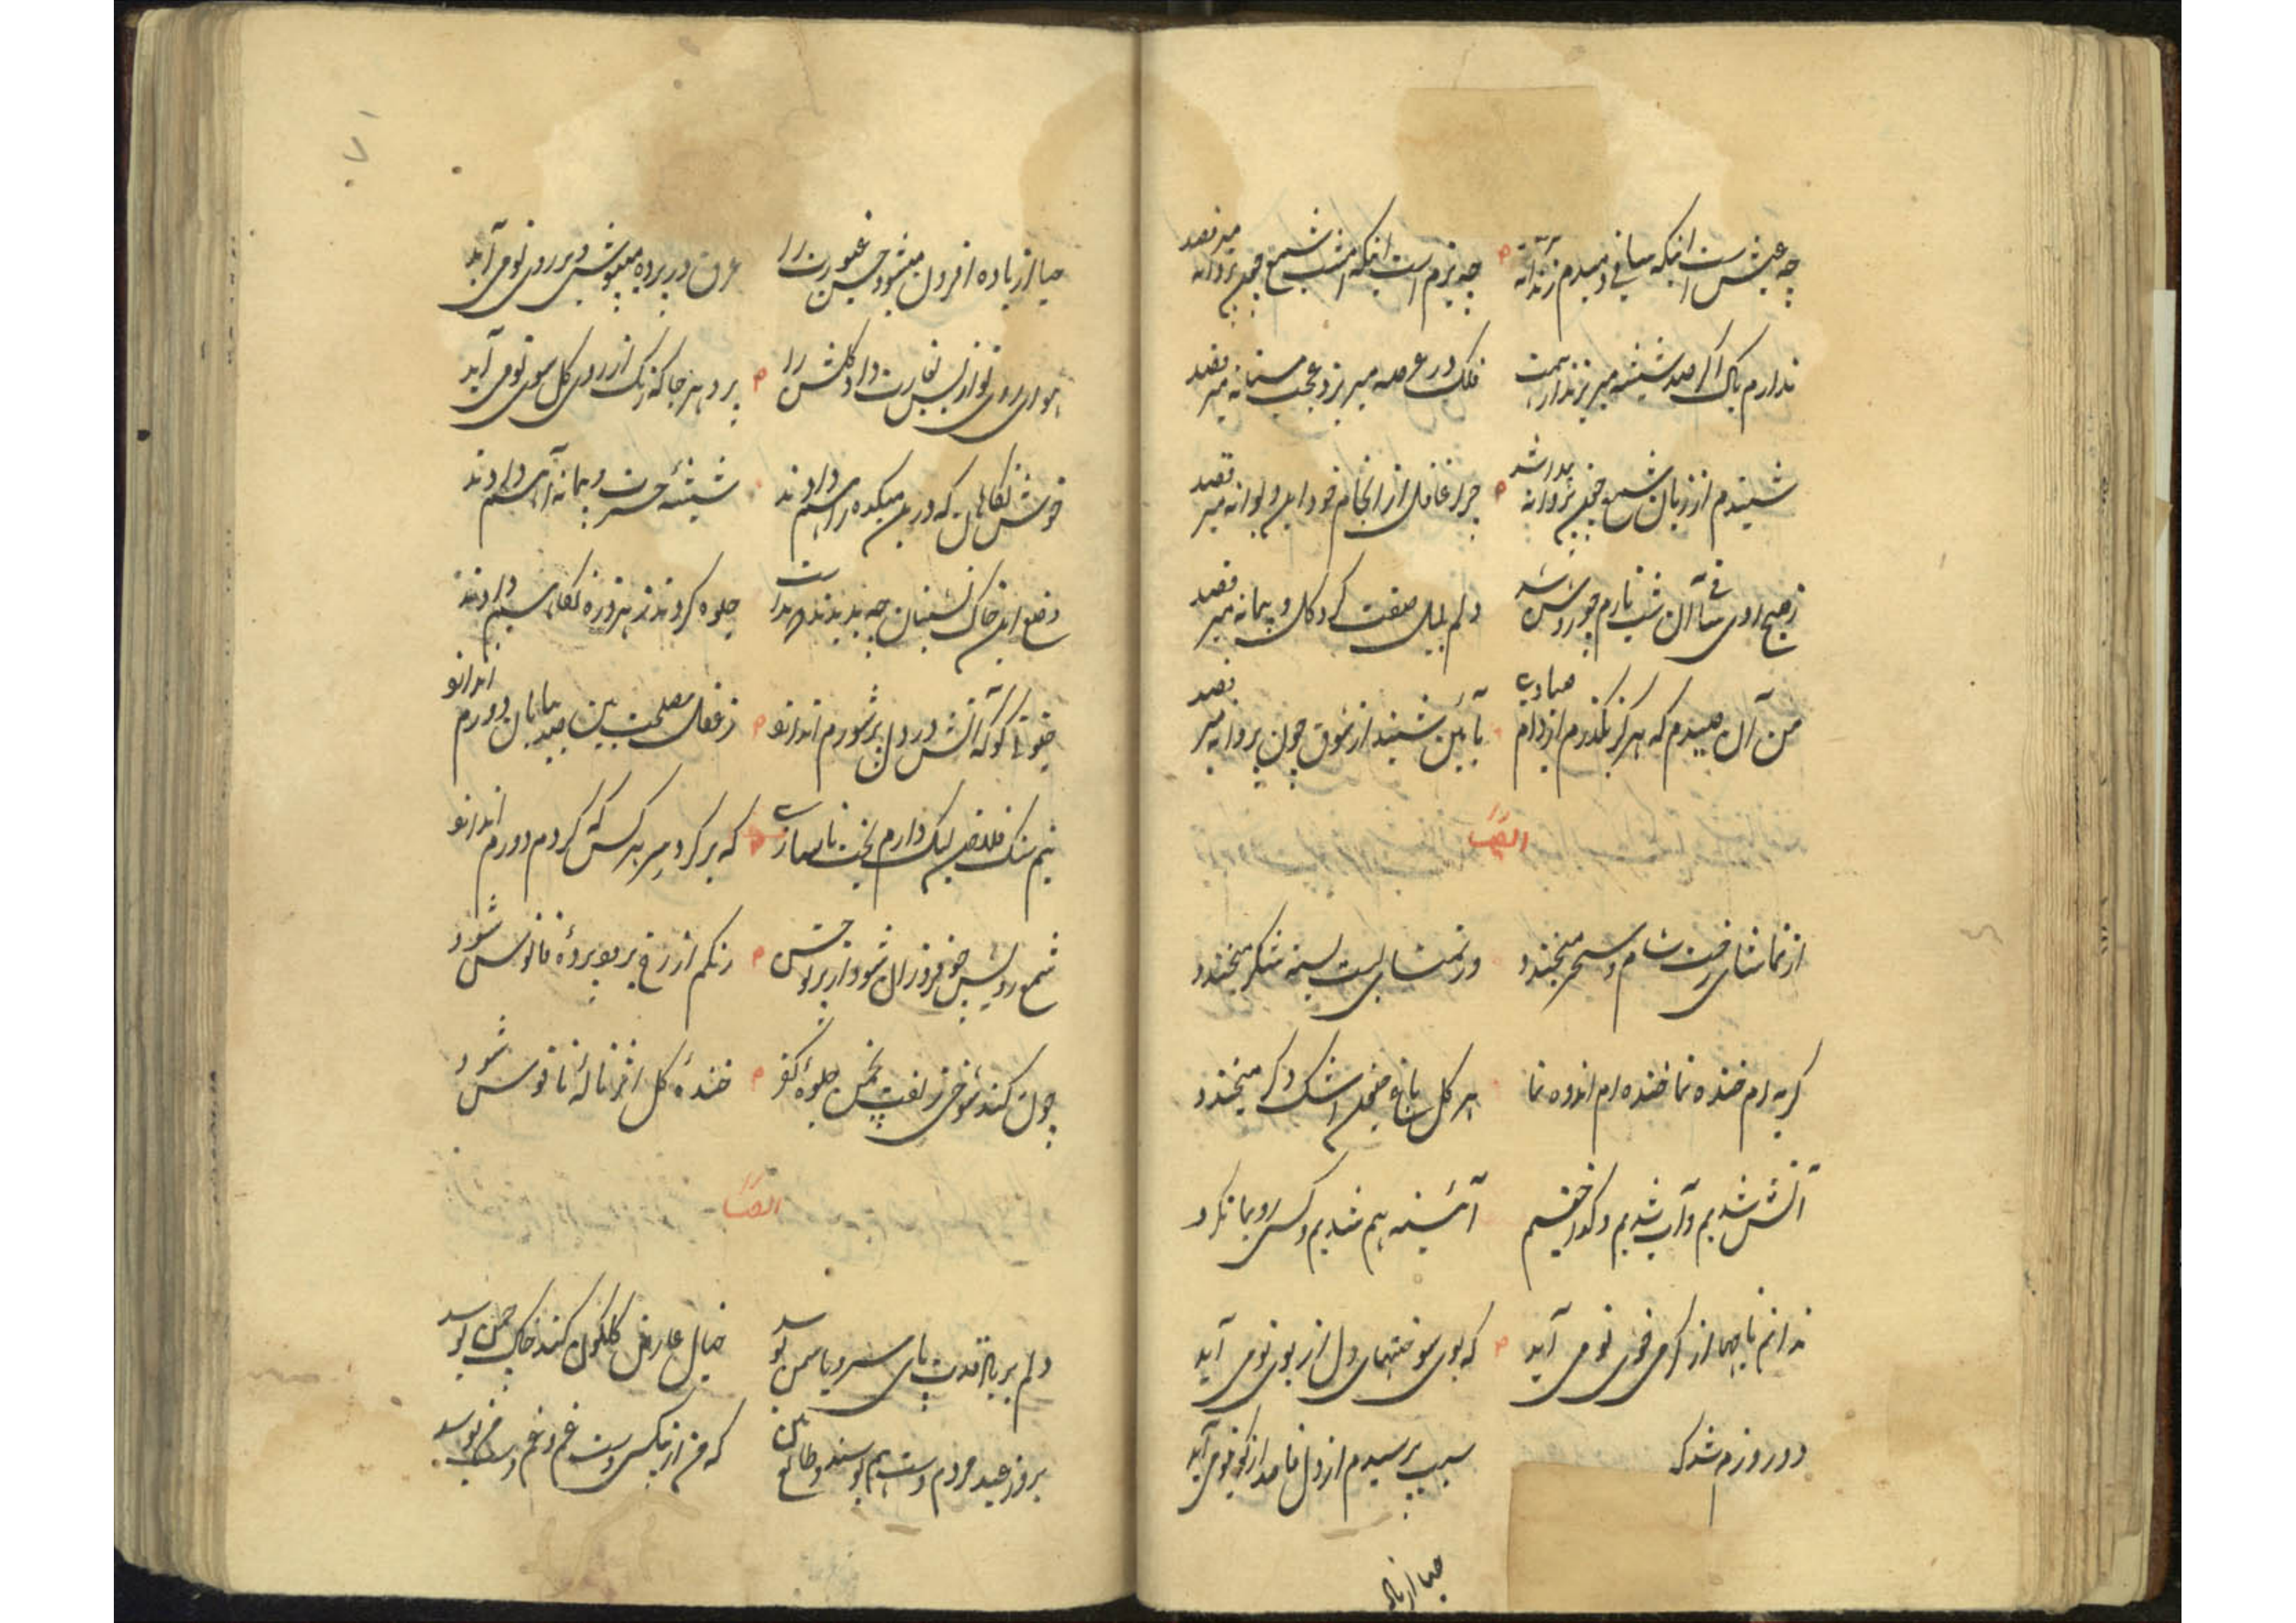 چه عیش است اینکه ساقی دمیدم رندانه میرقصد
چه بزم است اینکه امشب شمع چون پروانه میرقصد
ندارم باک اگر صد شیشه میریزند از دست
فلک در عرصه میریزد عجب مستانه میرقصد
شنیدم از زبان شمع چون پروانه
چرا غافل از انجام خود این دیوانه میرقصد
ز صبح روی ساقی آن شب تارم چو روشن شد
دلم بلبل صفت گرد گل و پیمانه میرقصد
من آن صیدم که هرگز نگذرم از دام صیادی
بآئین سپند از شوق چون پروانه میرقصد
ایضاً
از تماشای رخت شام و سحر میخندد
وز تمنای لبت پسته شکر میخندد
گریه ام خنده نما خنده ام اندوه نما
هر گل باغ
آتش شدیم و آب شدیم و
آئینه هم شدیم و کسی رو بما نکرد
ندانم تا چها از گرمی خوی تو می آید
که بوی سوختنهای دل از بوی تو می آید
دو روزم شد که
سبب پرسیدم از دل قاصد از کوی تو می آید
حیا از باده
حیا از باده افزون میشود حسن غیورت را
عرق در پرده میپوشی و بر روی تو می آید
هوای روی تو از بس بغارت داد گلشن را
پرد هر جا که رنگ از روی گل سوی تو می آید
خوش نگاهان که درین میکده راهم دادند
شیشهٔ حسرت و پیمانهٔ آهم دادند
وضع این خاک نشینان چه
جلوه کردند ز هر ذره نگاهم دادند
آتش در دل پرشورم اندازد
ز فعل مصلحت بین صد بیابان دورم اندازد
نیم سنگ فلاخن لیک دارم بخت ناسازی
که بر گرد سر هر کس که گردم دورم اندازد
شمع رویش چو فروزان شود از برق
رنگم از رخ پرد و پردهٔ فانوس شود
چون کند شوخی زلفت بچمن جلوهٔ کفر
خندهٔ گل اثر نالهٔ ناقوس شود
ایضاً
دلم بر یاد قدت پای سرو یاسمن بوسد
خیال عارض گلگون کند خاک چمن بوسد
بروز عید مردم دست هم بوسند و طالع بین
که من از بیکسی دست غم و غم دست من بوسد